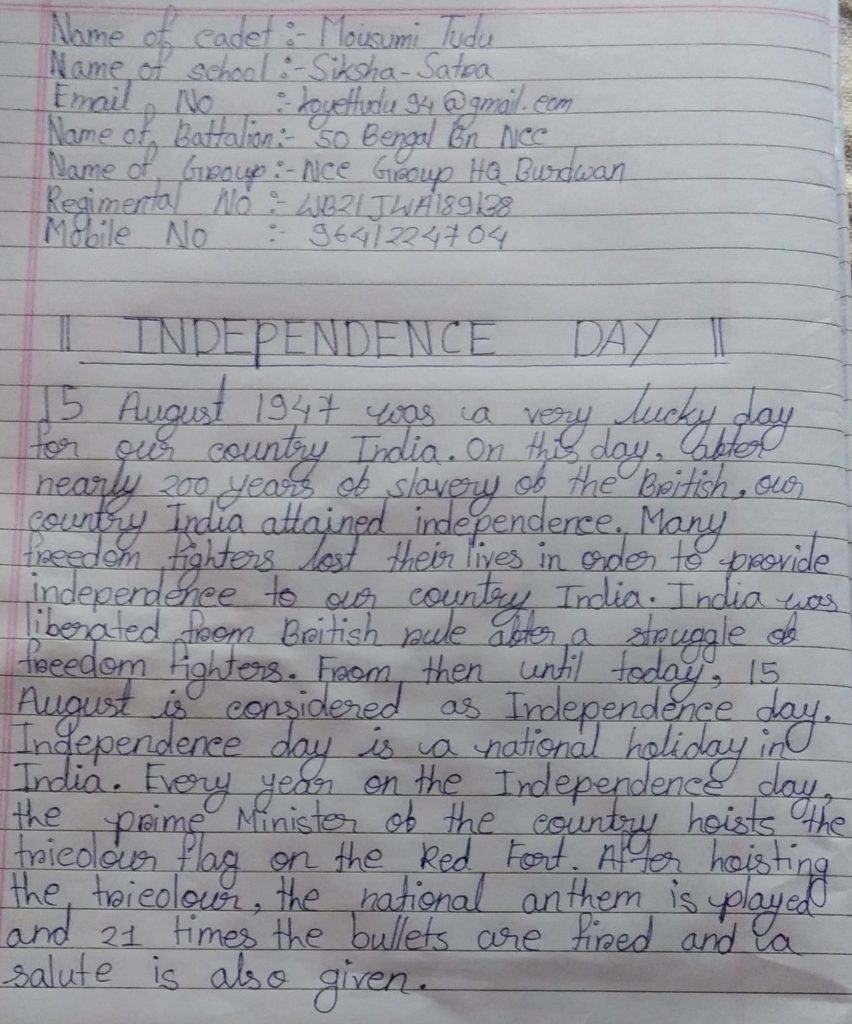 Name of cadet :- Mousumi Tudu
Name of school :- Siksha-Satra
Email No :- joyettudu94@gmail.com
Name of Battalion:- 50 Bengal Bn NCC
Name of Group :- NCC Group HQ Burdwan
Regimental No :- WB21JWA189138
Mobile No :- 9641224704
|| INDEPENDENCE DAY ||
15 August 1947 was a very lucky day
for our country India. On this day, after
nearly 200 years of slavery of the British, our
country India attained independence. Many
freedom fighters lost their lives in order to provide
independence to our country India. India was
liberated from British rule after a struggle of
freedom fighters. From then until today, 15
August is considered as Independence day.
Independence day is a national holiday in
India. Every year on the Independence day,
the prime Minister of the country hoists the
tricolour flag on the Red Fort. After hoisting
the tricolour, the national anthem is played
and 21 times the bullets are fired and a
salute is also given.